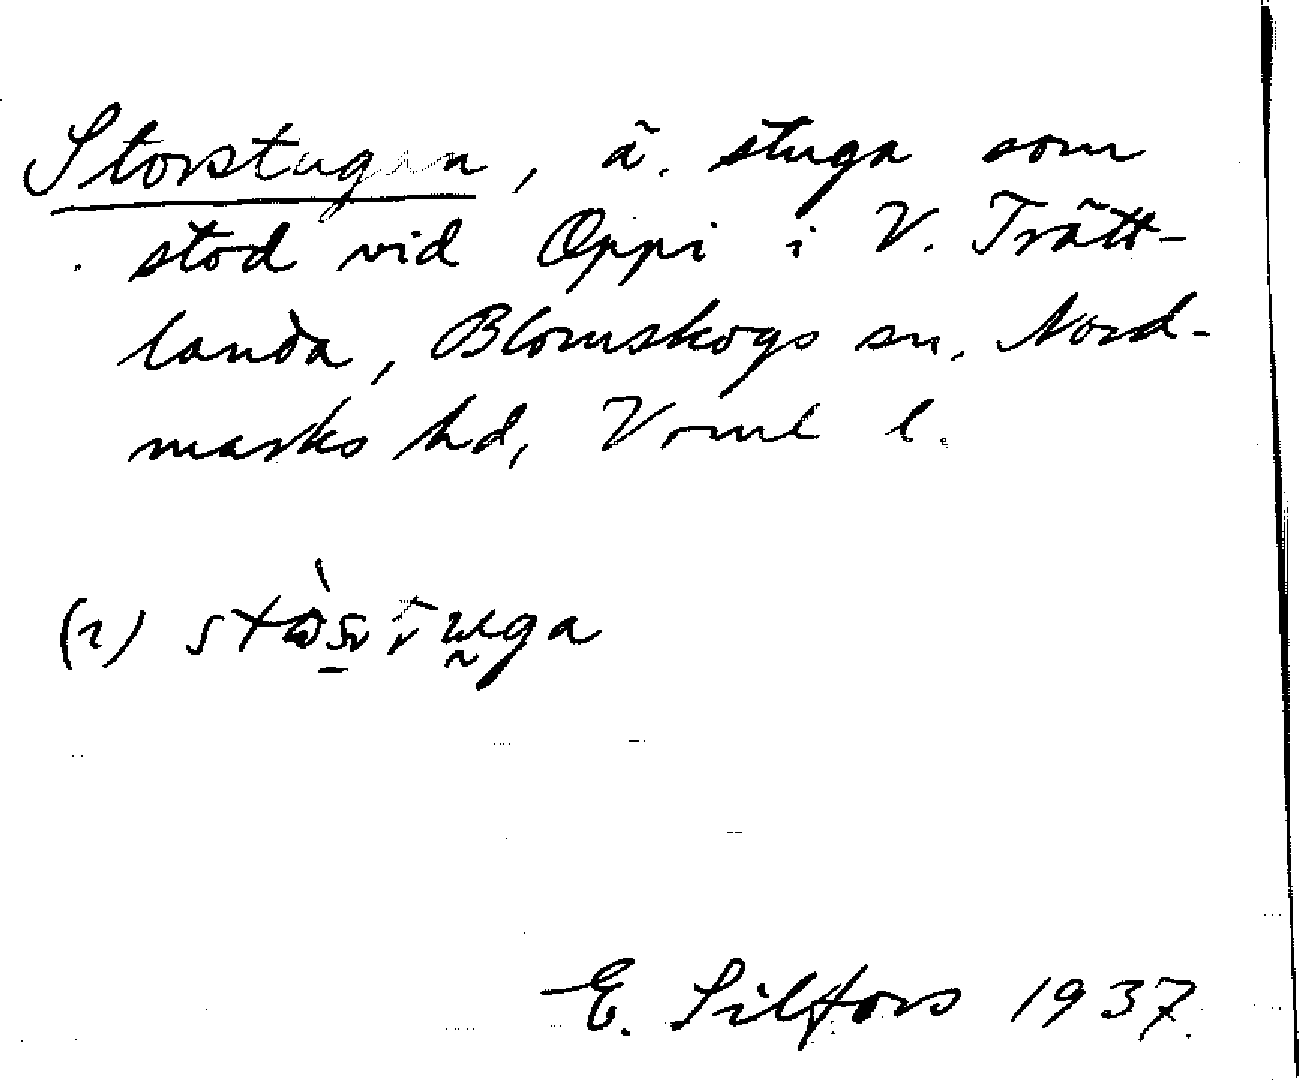 Storstugan, ä. stuga som
stod vid Oppi i V. Trätt-
landa, Blomskogs sn, Nord-
marks hd, Vrml l.
(2)
E. Silfors 1937.